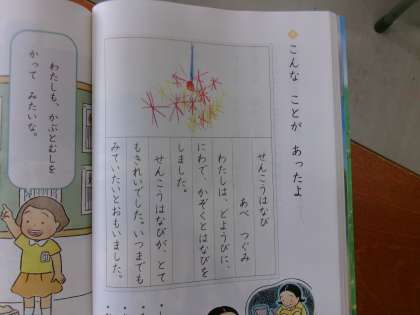 こんな ことが あったよ
せんこうはなび
あべ つぐみ
わたしは、どようびに、
にわで、かぞくとはなびを
しました。
せんこうはなびが、とて
もきれいでした。いつまでも
みていたいとおもいました。
わたしも、かぶとむしを
かって みたいな。